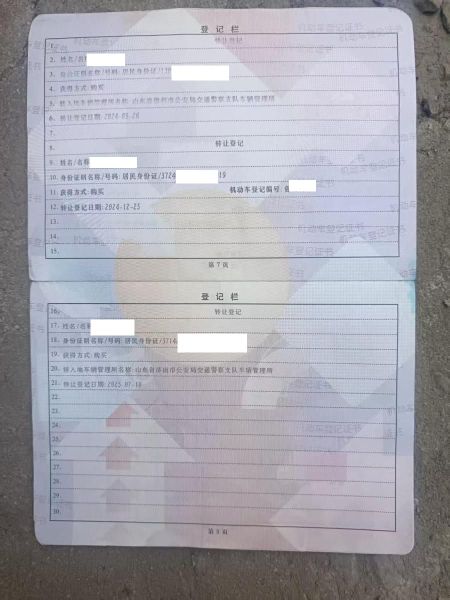 登记栏
1. 转让登记
2. 姓名/名
3. 身份证明名称/号码:居民身份证/
4. 获得方式:购买
5. 转入地车辆管理所名称:山东省德州市公安局交通警察支队车辆管理所
6. 转让登记日期:2024-05-28
7.
8. 转让登记
9. 姓名/名称
10. 身份证明名称/号码:居民身份证/3724 19
11. 获得方式:购买 机动车登记编号:鲁
12. 转让登记日期:2024-12-25
13.
14.
15.
第7页
登记栏
16. 转让登记
17. 姓名/名
18. 身份证明名称/号码:居民身份证/3714
19. 获得方式:购买
20. 转入地车辆管理所名称:山东省济南市公安局交通警察支队车辆管理所
21. 转让登记日期:2025-07-18
22.
23.
24.
25.
26.
27.
28.
29.
30.
第8页
机动车登记证书